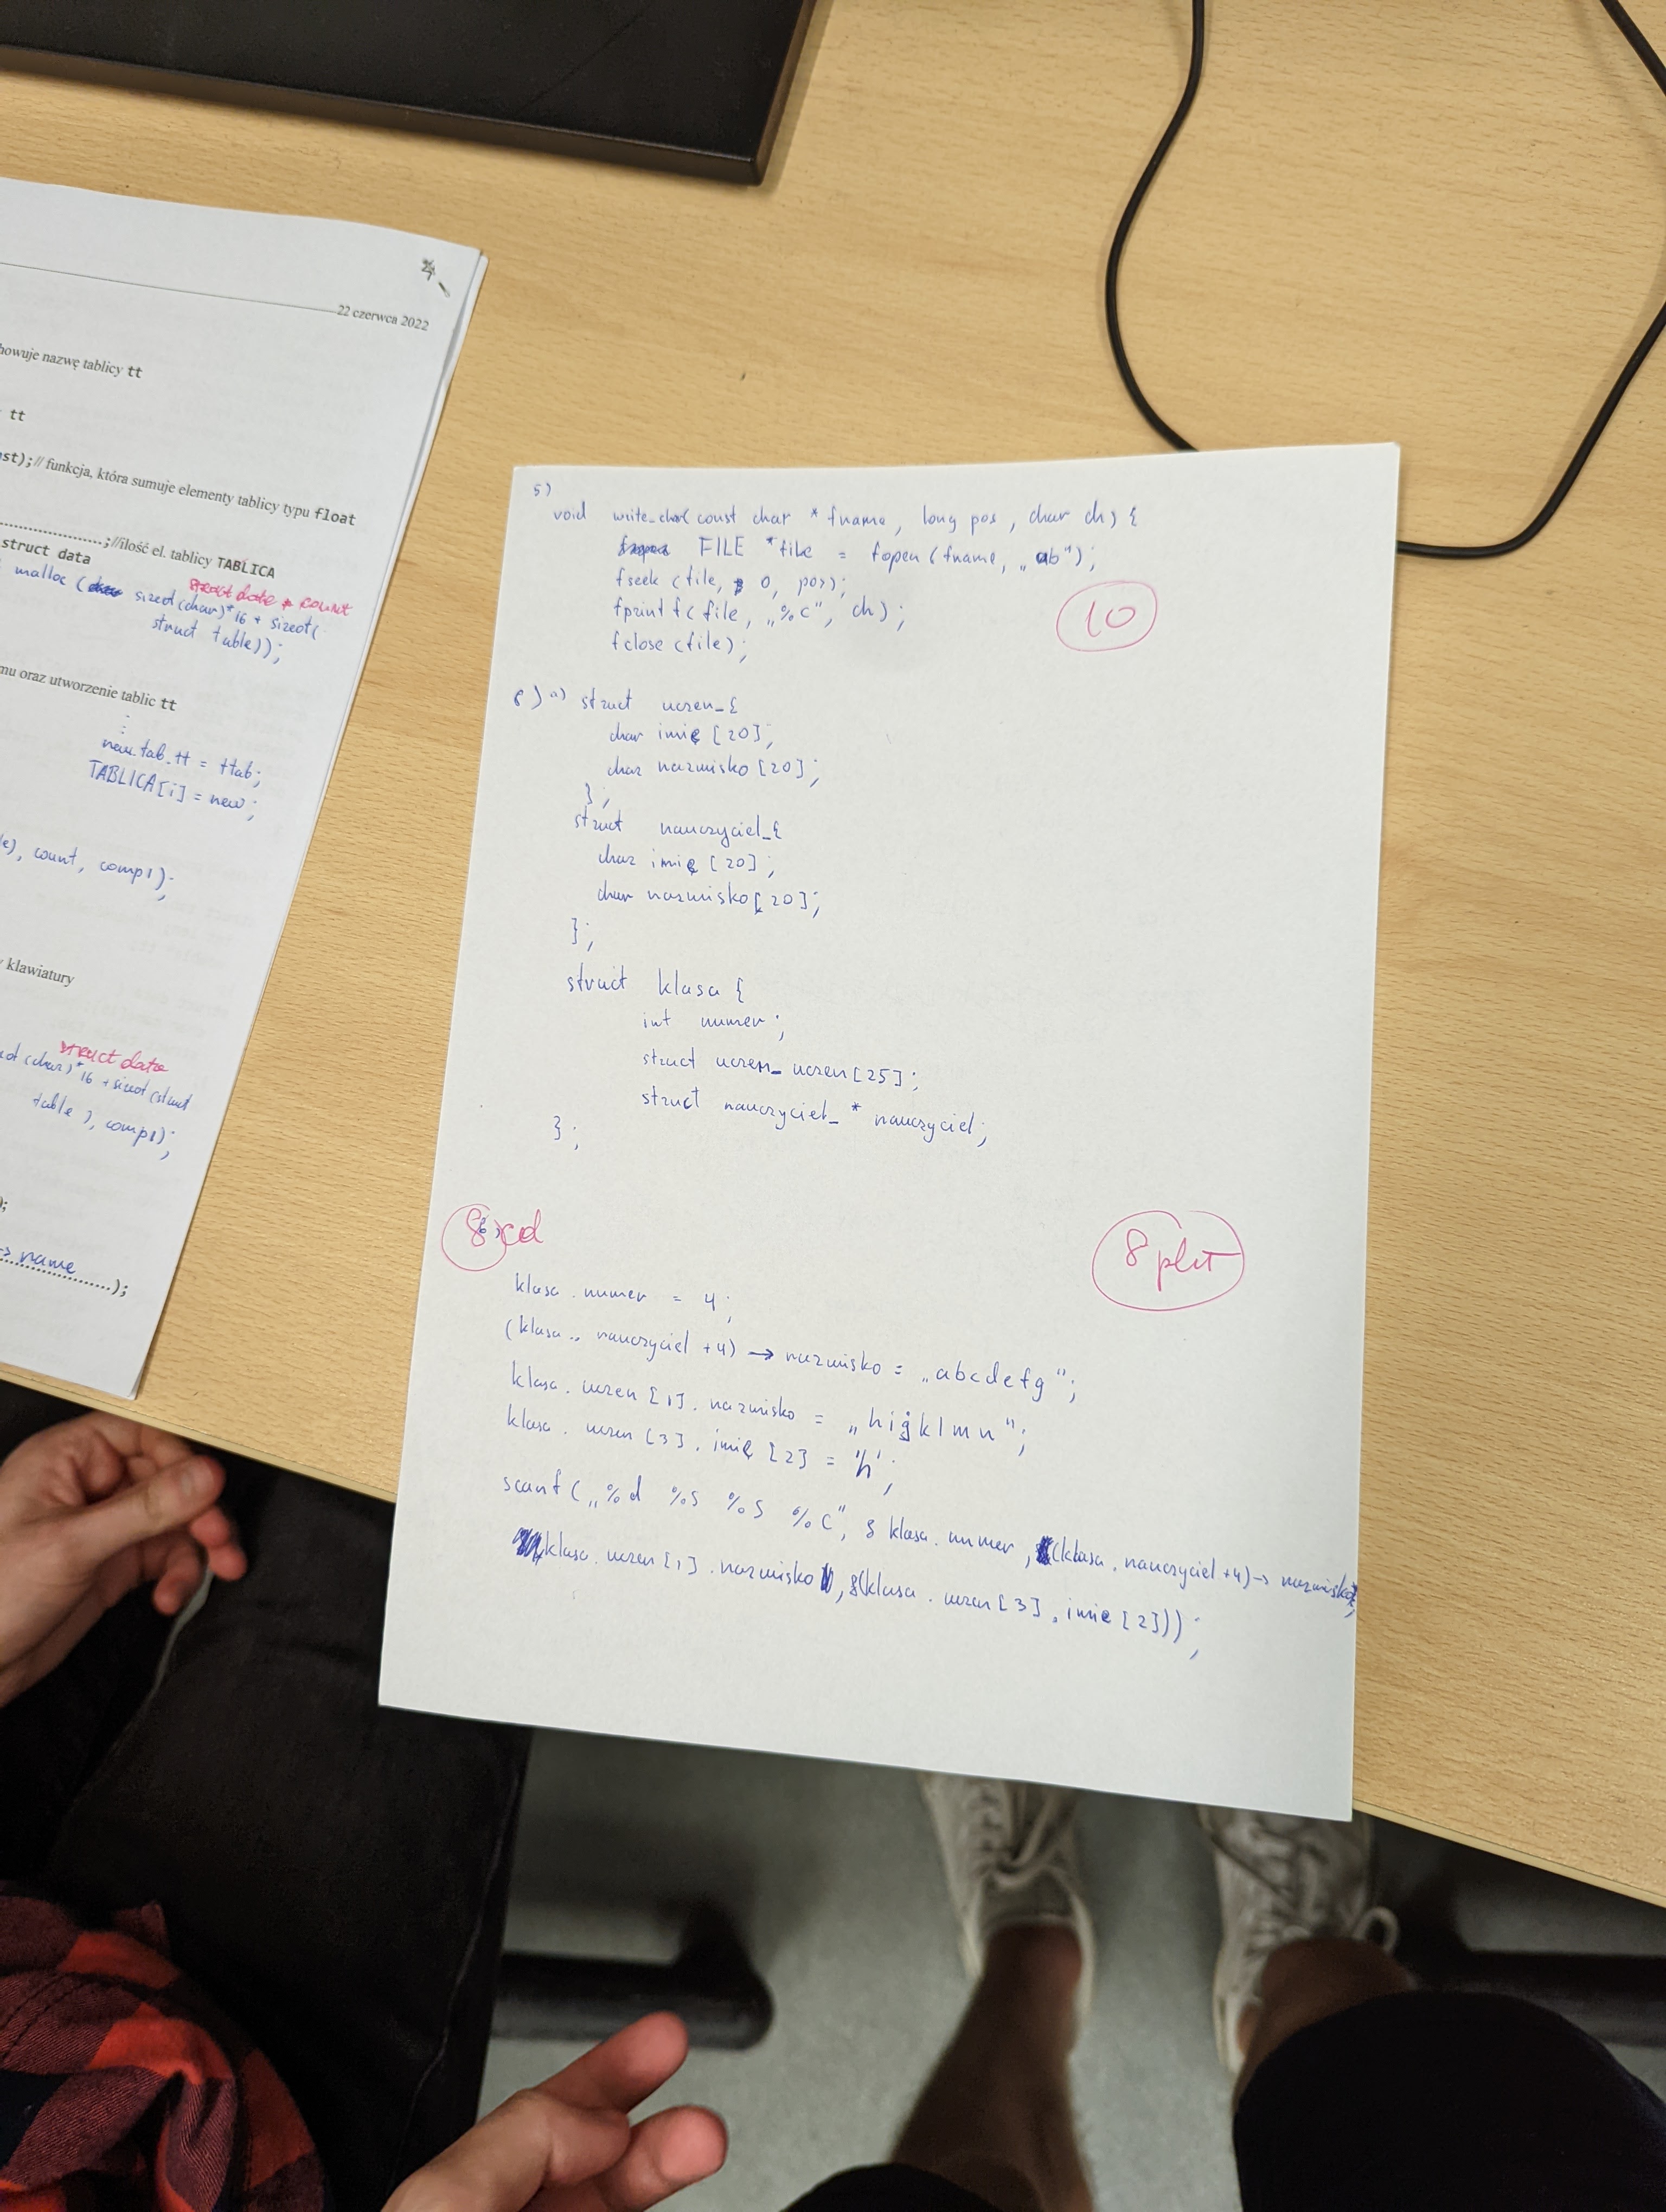 22 czerwca 2022
howuje nazwę tablicy tt
tt
st);// funkcja, która sumuje elementy tablicy typu float
;//ilość el. tablicy TABLICA
struct data
struct data * count
malloc ( sizeof(char)*16 + sizeof(
struct table));
mu oraz utworzenie tablic tt
new.tab.tt = ttab;
TABLICA[i] = new;
e), count, comp1);
klawiatury
struct data
of (char)*16 + sizeof (struct
table ), comp1);
);
-> name
);
5)
void write_char( const char * fname, long pos, char ch) {
FILE *file = fopen (fname, „ab");
fseek (file, 0, pos);
fprintf( file, „%c", ch);
10
fclose (file);
6) a) struct uczen_{
char imię [20];
char nazwisko [20];
};
struct nauczyciel_{
char imię [20];
char nazwisko [20];
};
struct klasa {
int numer;
struct uczen_ uczen [25];
struct nauczyciel_ * nauczyciel;
};
8 cd
8 pkt
klasa . numer = 4;
(klasa . nauczyciel +4) -> nazwisko = „abcdefg";
klasa . uczen [1] . nazwisko = „hijklmn";
klasa . uczen [3] . imię [2] = 'h';
scanf („%d %s %s %c", & klasa . numer, (klasa . nauczyciel +4) -> nazwisko,
klasa . uczen [1] . nazwisko, &(klasa . uczen [3] . imię [2]));